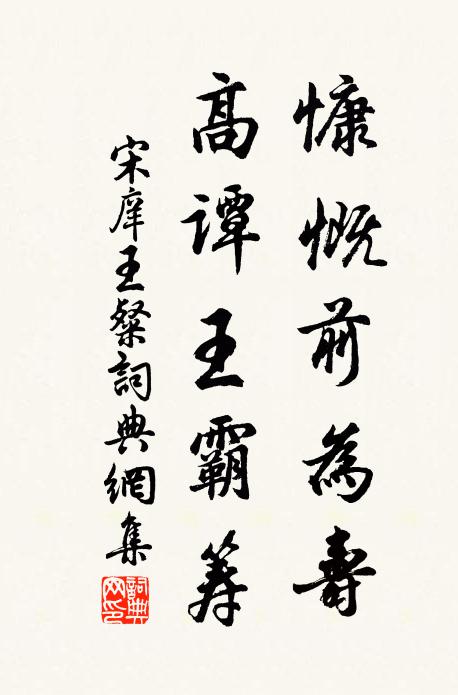 慷慨前為壽
高譚王霸筭
宋庠王粲詞典網集
詞典網印